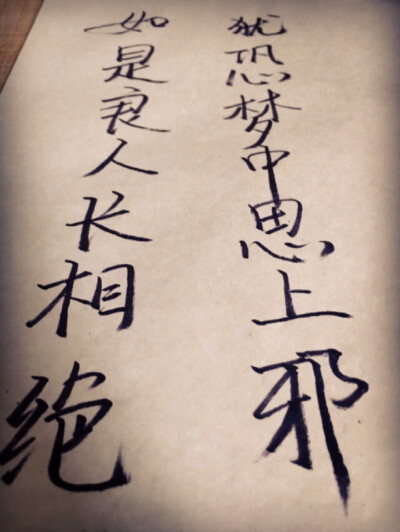 犹恐梦中思上邪
如是良人长相绝